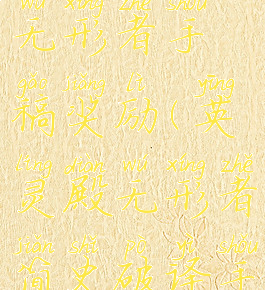 wú xíng zhě shǒu
无形者手
gǎo jiǎng lì yīng
稿奖励(英
líng diàn wú xíng zhě
灵殿无形者